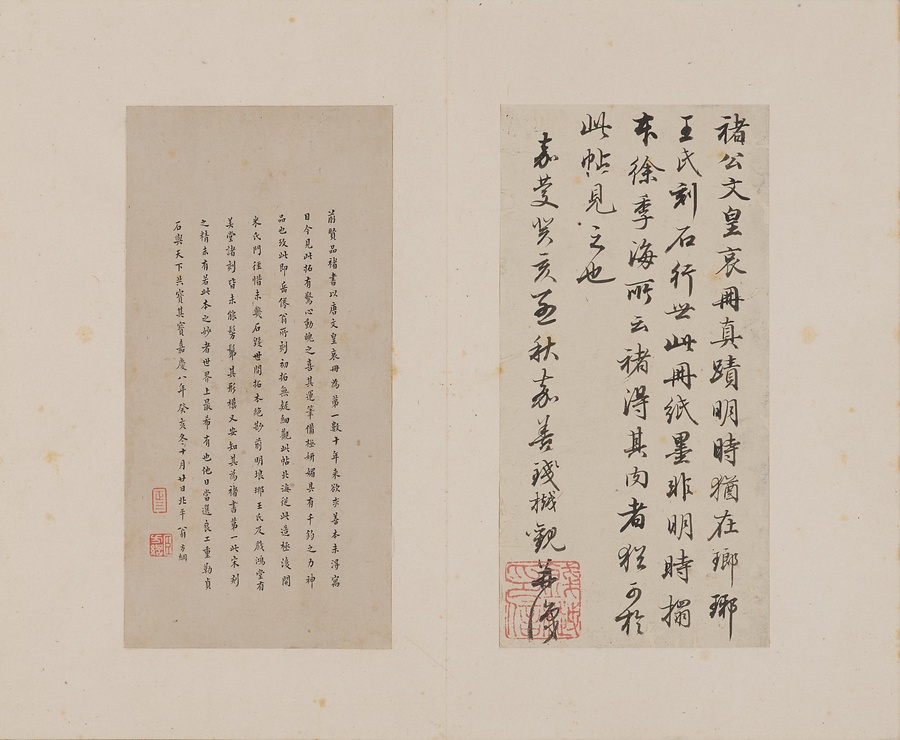 褚公文皇哀冊真蹟明時猶在瑯琊
王氏刻石行世此冊紙墨非明時搨
本徐季海所云褚得其肉者猶可於
此帖見之也
嘉慶癸亥秋嘉善錢樾觀並識
前賢品褚書以唐文皇哀冊為第一數十年來欲求善本未得寓
目今見此拓有驚心動魄之喜其運筆備極妍媚具有千鈞之力神
品也攷此即岳倦翁所刻初拓無疑細觀此帖北海從此造極後開
米氏門徑惜未幾石毀世間拓本絕尠前明琅琊王氏及戲鴻堂有
美堂諸刻皆未能髣髴其形模又安知其為褚書第一此宋刻
之精未有若此本之妙者世界上最希有也他日當選良工重勒貞
石與天下共寶其寶嘉慶八年癸亥冬十月廿日北平翁方綱